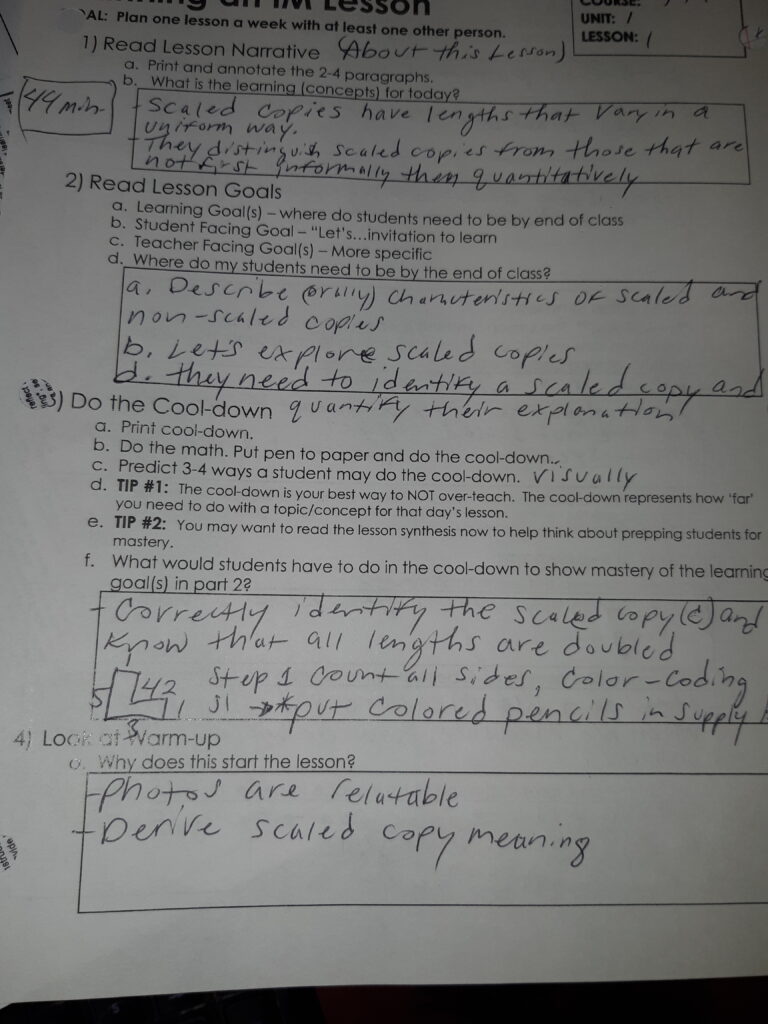 an IM Lesson
AL: Plan one lesson a week with at least one other person.
COURSE:
UNIT: 1
LESSON: 1
1) Read Lesson Narrative (About this Lesson)
a. Print and annotate the 2-4 paragraphs.
b. What is the learning (concepts) for today?
44 min.
- Scaled copies have lengths that vary in a
uniform way.
- They distinguish scaled copies from those that are
not first informally then quantitatively
2) Read Lesson Goals
a. Learning Goal(s) – where do students need to be by end of class
b. Student Facing Goal – "Let's...invitation to learn
c. Teacher Facing Goal(s) – More specific
d. Where do my students need to be by the end of class?
a. Describe (orally) characteristics of scaled and
non-scaled copies
b. Let's explore scaled copies
d. they need to identify a scaled copy and
quantify their explanation!
3) Do the Cool-down
a. Print cool-down.
b. Do the math. Put pen to paper and do the cool-down..
c. Predict 3-4 ways a student may do the cool-down. visually
d. TIP #1: The cool-down is your best way to NOT over-teach. The cool-down represents how 'far'
you need to do with a topic/concept for that day's lesson.
e. TIP #2: You may want to read the lesson synthesis now to help think about prepping students for
mastery.
f. What would students have to do in the cool-down to show mastery of the learning
goal(s) in part 2?
+ Correctly identify the scaled copy (C) and
know that all lengths are doubled
1
5 4 2 Step 1 count all sides, color-coding
1 * put colored pencils in supply
3
4) Look at Warm-up
a. Why does this start the lesson?
- Photos are relatable
- Derive scaled copy meaning